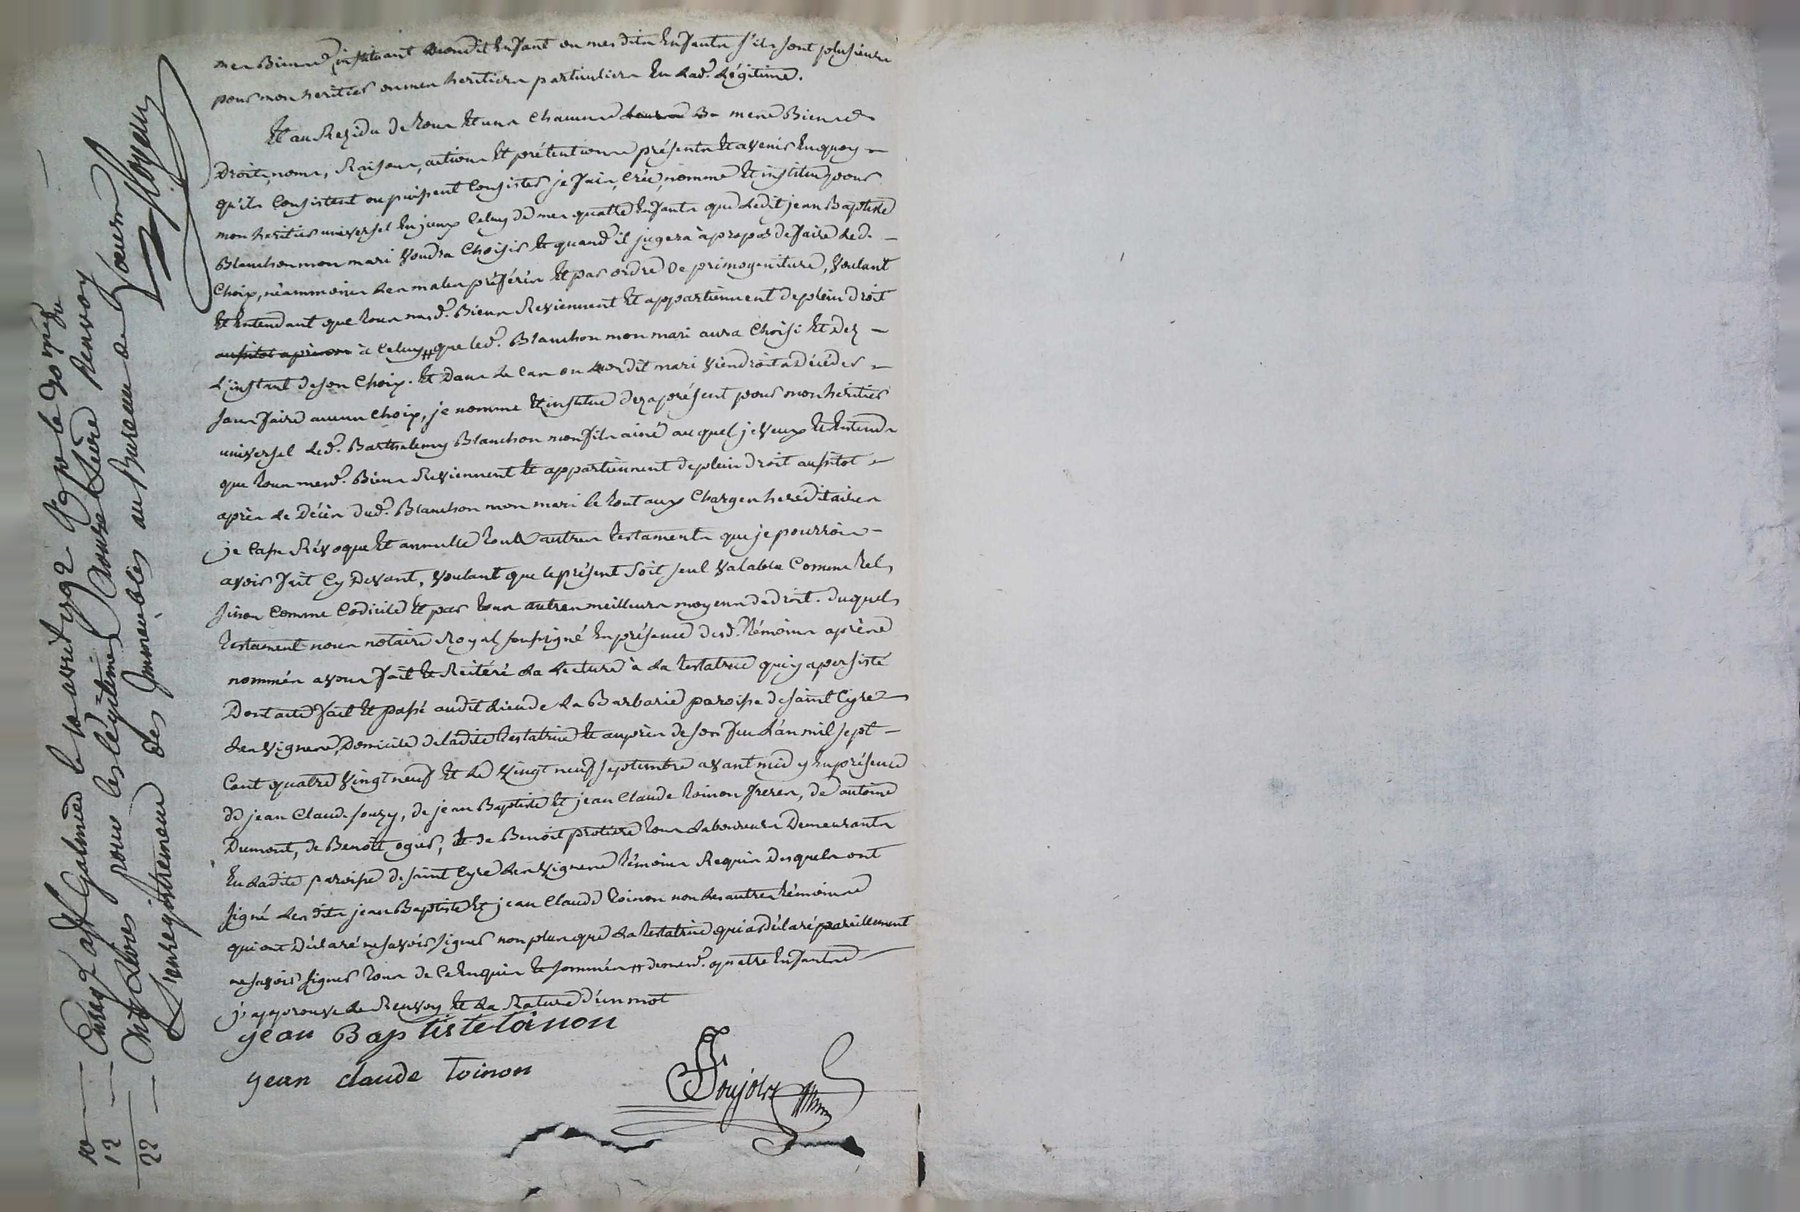 mes Biens, instituant mondit Enfant ou mesdits Enfants s'ils sont plusieurs
pour mon heritier ou mes heritiers particuliers En lad.e Légitime.
Et au Rezidu de tous Et uns chacuns mes Biens
Droits, noms, Raisons, actions Et prétentions présents Et avenir Enquoy
qu'ils Consistent ou puissent Consister je fais, crée, nomme Et institue pour
mon heritier universel Celuy de mes quatre Enfants que Ledit jean Baptiste
Blanchon mon mari voudra choisir Et quand il jugera àpropos de faire led.
choix, néammoins les males préférés Et par ordre de primogeniture, Voulant
Et Entendant que tous mesd. Biens Reviennent Et appartiennent deplein droit
à Celuy # que led. Blanchon mon mari aura choisi Et dez
L'instant de son choix. Et Dans Le Cas ou mondit mari viendroit a Décéder
sans faire aucun choix, je nomme Et institue dez aprésent pour mon heritier
universel led. Barthelemy Blanchon mon fils ainé auquel je veux Et Entends
que tous mesd. Biens Reviennent Et appartiennent deplein droit aussitot
après Le Décès dud. Blanchon mon mari le tout aux charges héréditaires
je Casse Révoque Et annulle tout autres testaments que je pourrois
avoir fait Cy Devant, voulant que leprésent soit seul valable Comme tel,
sinon Comme Codicile Et par tous autres meilleurs moyens de droit. duquel
testament nous notaire Royal soussigné En présence desd. témoins après
nommés avons fait Et Réitéré La Lecture à La testatrice qui y a persisté
Dont acte fait Et passé audit Lieu de La Barbarie paroisse de saint Cyr
Les vignes, Domicile de ladite testatrice Et auprès de son feu L'an mil sept
Cent quatre vingt neuf Et Le vingt neuf septembre avant midy En présence
de jean Claude souzy, de jean Baptiste Et jean Claude toinon freres, de antoine
Dumont, de Benoît ogier, Et de Benoît protiere tous Laboureurs Demeurants
En Ladite paroisse de saint Cyr Les vignes témoins Requis Desquels ont
signé Lesdits jean Baptiste Et jean Claude toinon non Les autres témoins
qui ont Déclaré ne savoir signer non plus que La testatrice qui a déclaré pareillement
ne savoir signer tous de Ce Enquis Et sommés # de mesd. quatre Enfants
j'approuve Le Renvoy Et La Rature d'un mot
jean Baptiste toinon
jean claude toinon
Goujon
le 10 avril 1792
pour les légitimes
L'enregistrement des Immeubles au Bureau
10
12
22